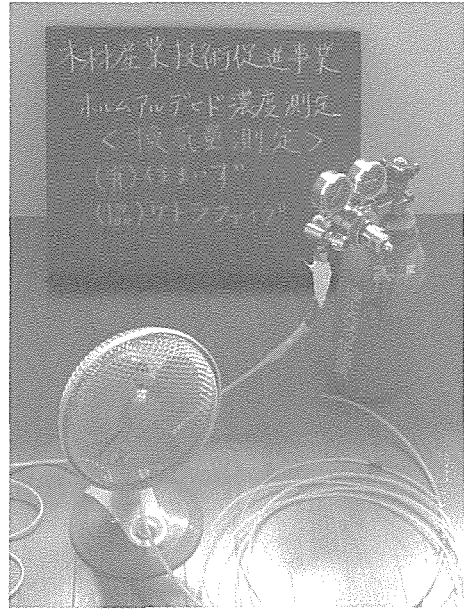 木材産業技術促進事業
ホルムアルデヒド濃度測定
<換気量測定>
(有)住まいず